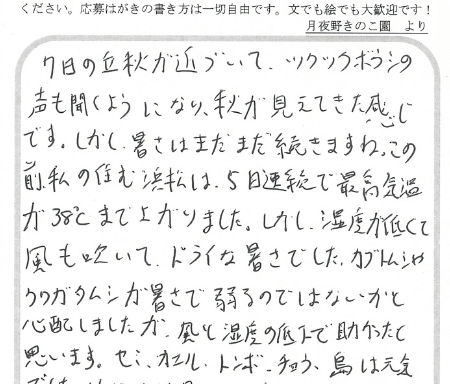 ください。応募はがきの書き方は一切自由です。文でも絵でも大歓迎です！
月夜野きのこ園　より
7日の立秋が近づいて、ツクツクボウシの
声も聞くようになり、秋が見えてきた感じ
です。しかし、暑さはまだまだ続きますね。この
前、私の住む浜松は、5日連続で最高気温
が38℃まで上がりました。しかし、湿度が低くて
風も吹いて、ドライな暑さでした。カブトムシや
クワガタムシが暑さで弱るのではないかと
心配しましたが、風と湿度の低下で助かったと
思います。セミ、カエル、トンボ、チョウ、鳥は元気
でした。